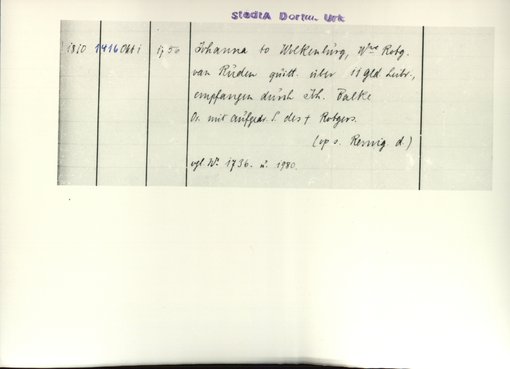 StadtA Dortm. Urk
1810 1416 Okt 1 1750 Johanna to Wolkenburg, Wwe Rotg.
van Rüden quitt. über 11 gld. Leibr.,
empfangen durch Joh. Balke
Or. mit aufgedr. S. des † Rotgers.
(op s. Remig. d.)
vgl. Nr. 1736. u. 1980.